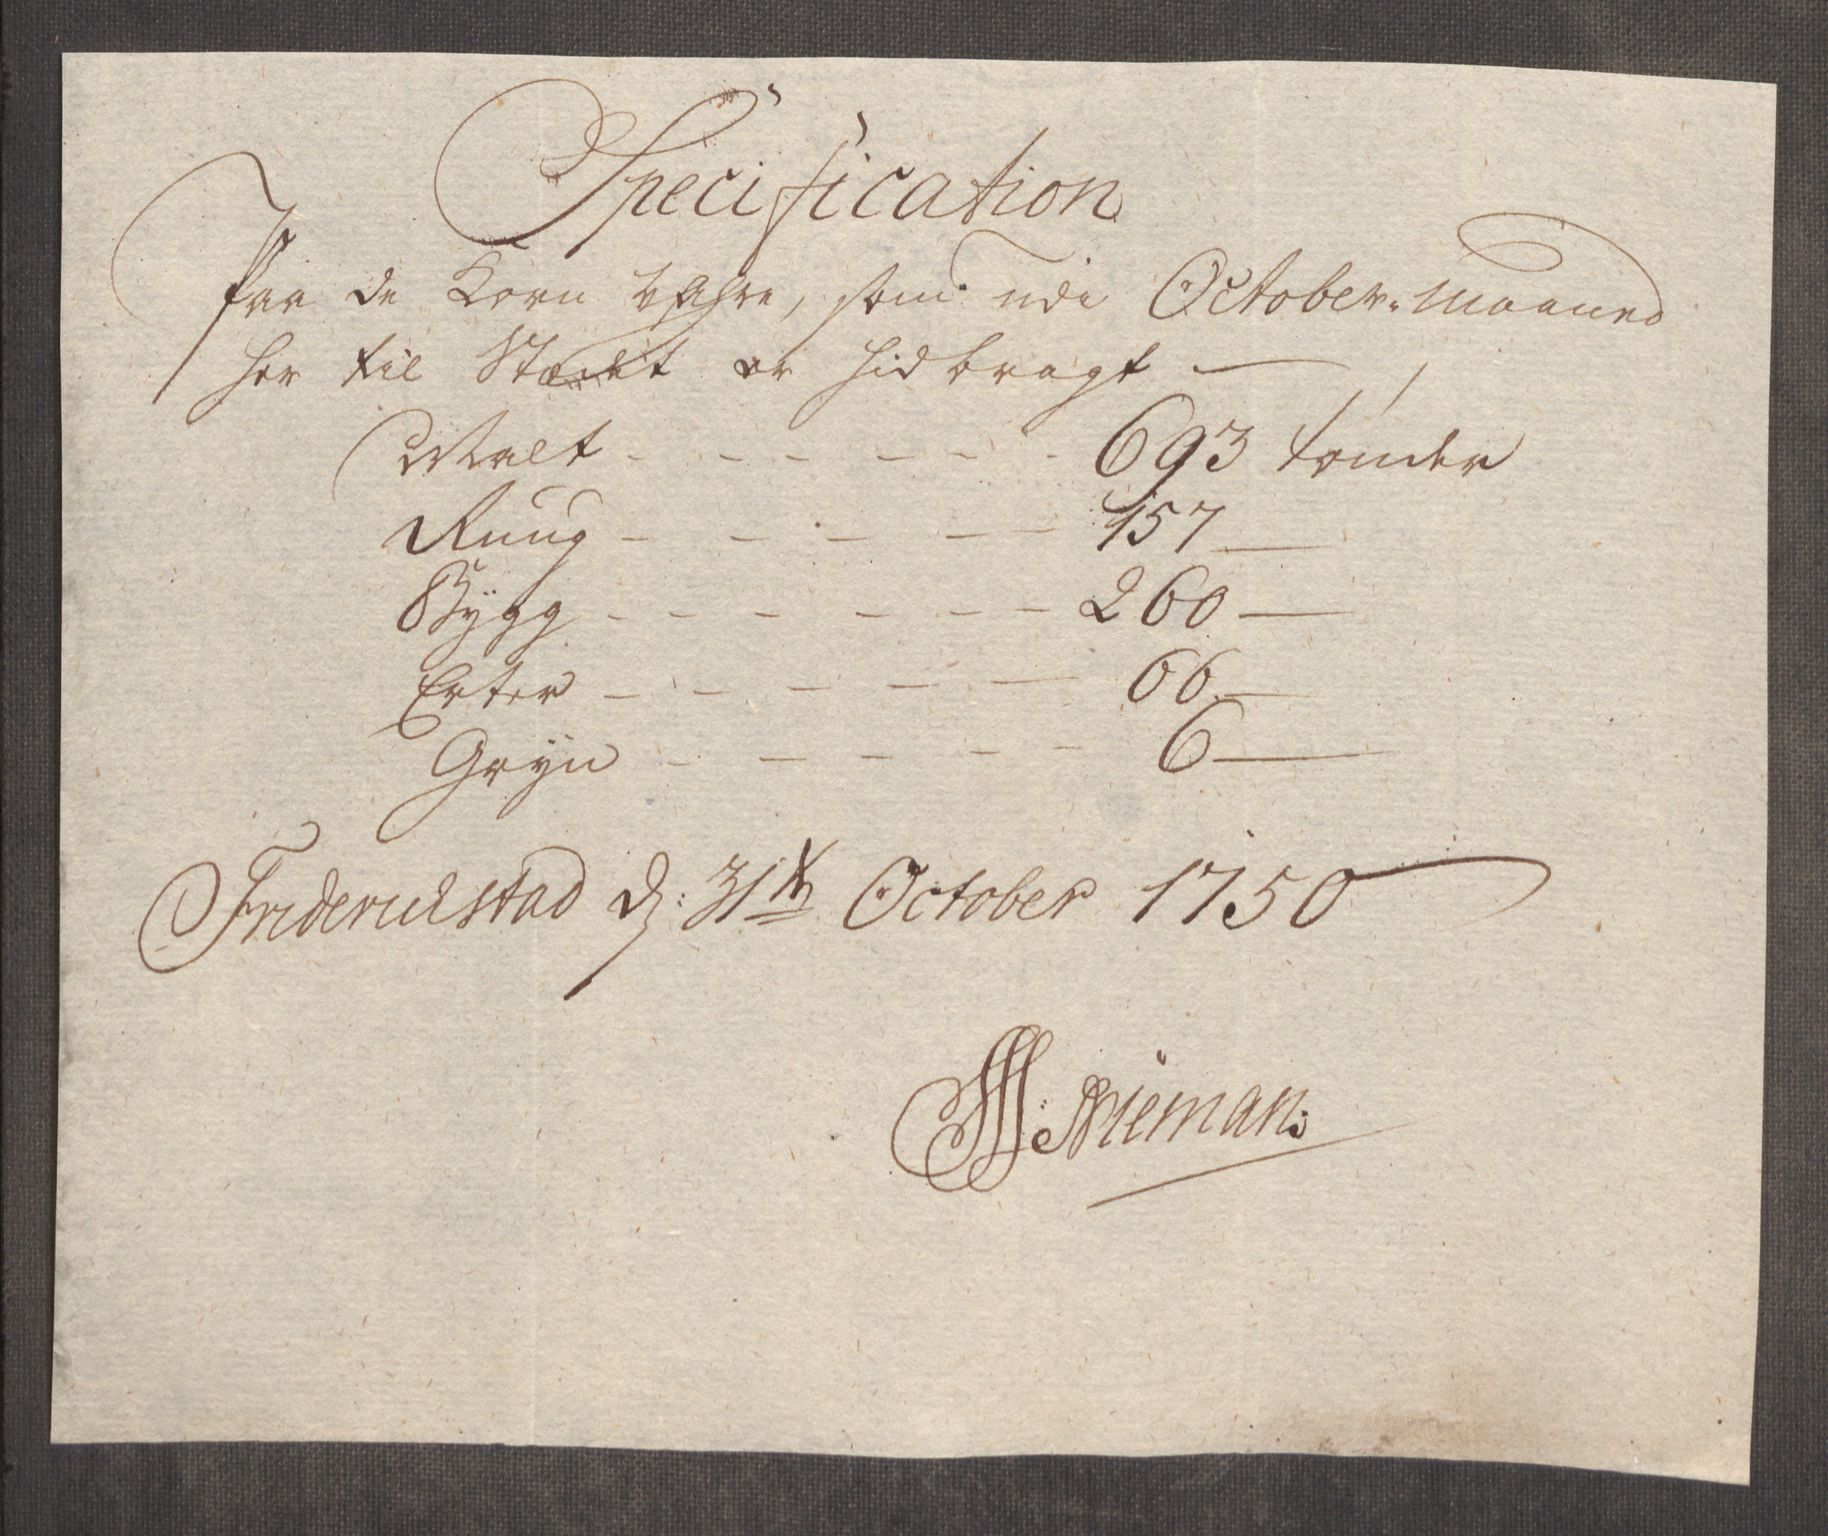 Specification
Paa de Korn Wahre, som udi October-Maaned
her til Stædet er hid bragt
Malt - - - - - - 693 tønder
Ruug - - - - - 157 —
Bygg - - - - - - 260 —
Erter - - - - - 66 —
Gryn - - - - - 6 —
Fridericstad d: 31te October 1750
Nieman